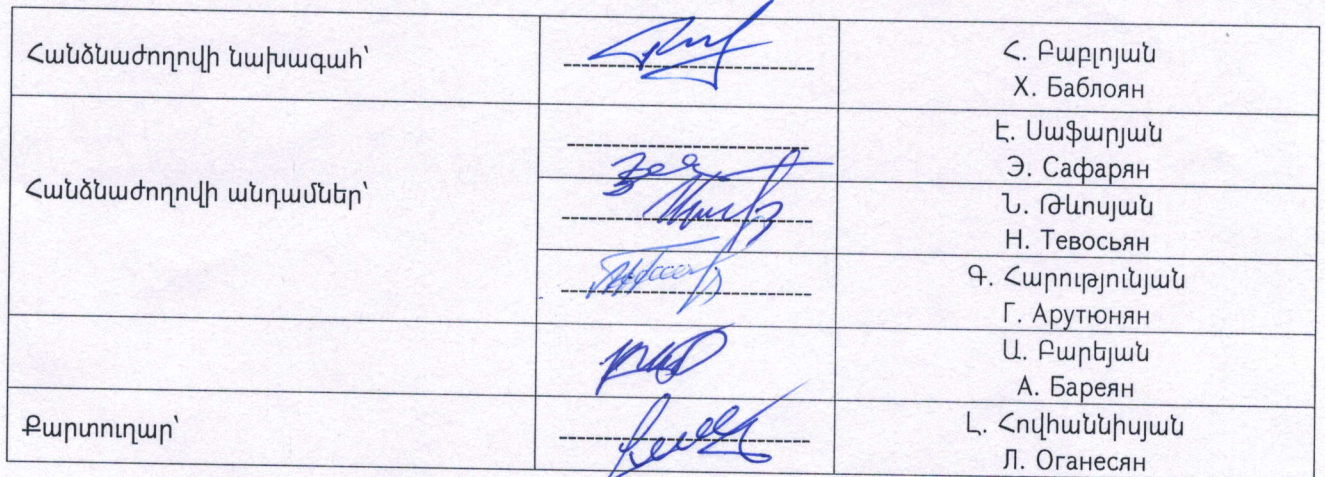 Հանձնաժողովի նախագահ՝
Հ. Բաբլոյան
Х. Баблоян
Հանձնաժողովի անդամներ՝
Է. Սաֆարյան
Э. Сафарян
Ն. Թևոսյան
Н. Тевосьян
Գ. Հարությունյան
Г. Арутюнян
Ա. Բարեյան
А. Бареян
Քարտուղար՝
Լ. Հովհաննիսյան
Л. Оганесян